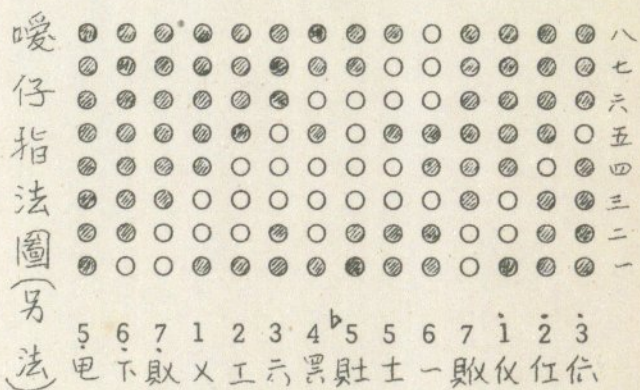 噯仔指法圖(另法)
八
七
六
五
四
三
二
一
5̣ 6̣ 7̣ 1 2 3 4 ♭5 5 6 7 1̇ 2̇ 3̇
下 乂 工 六 士 一 仪 仜